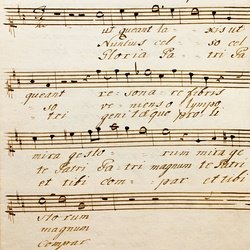 ut queant la- xis ut
Nuntius cel- so cel
Gloria Pa- tri Pa
queant re- sona- re fibris
so re- niens o lympo
tri geni tæque pro- li
mira gesto- rum mira ge
te Patri Pa- tri magnum te Pat-
et tibi com- par et tibi
sto rum
magnum
Compar